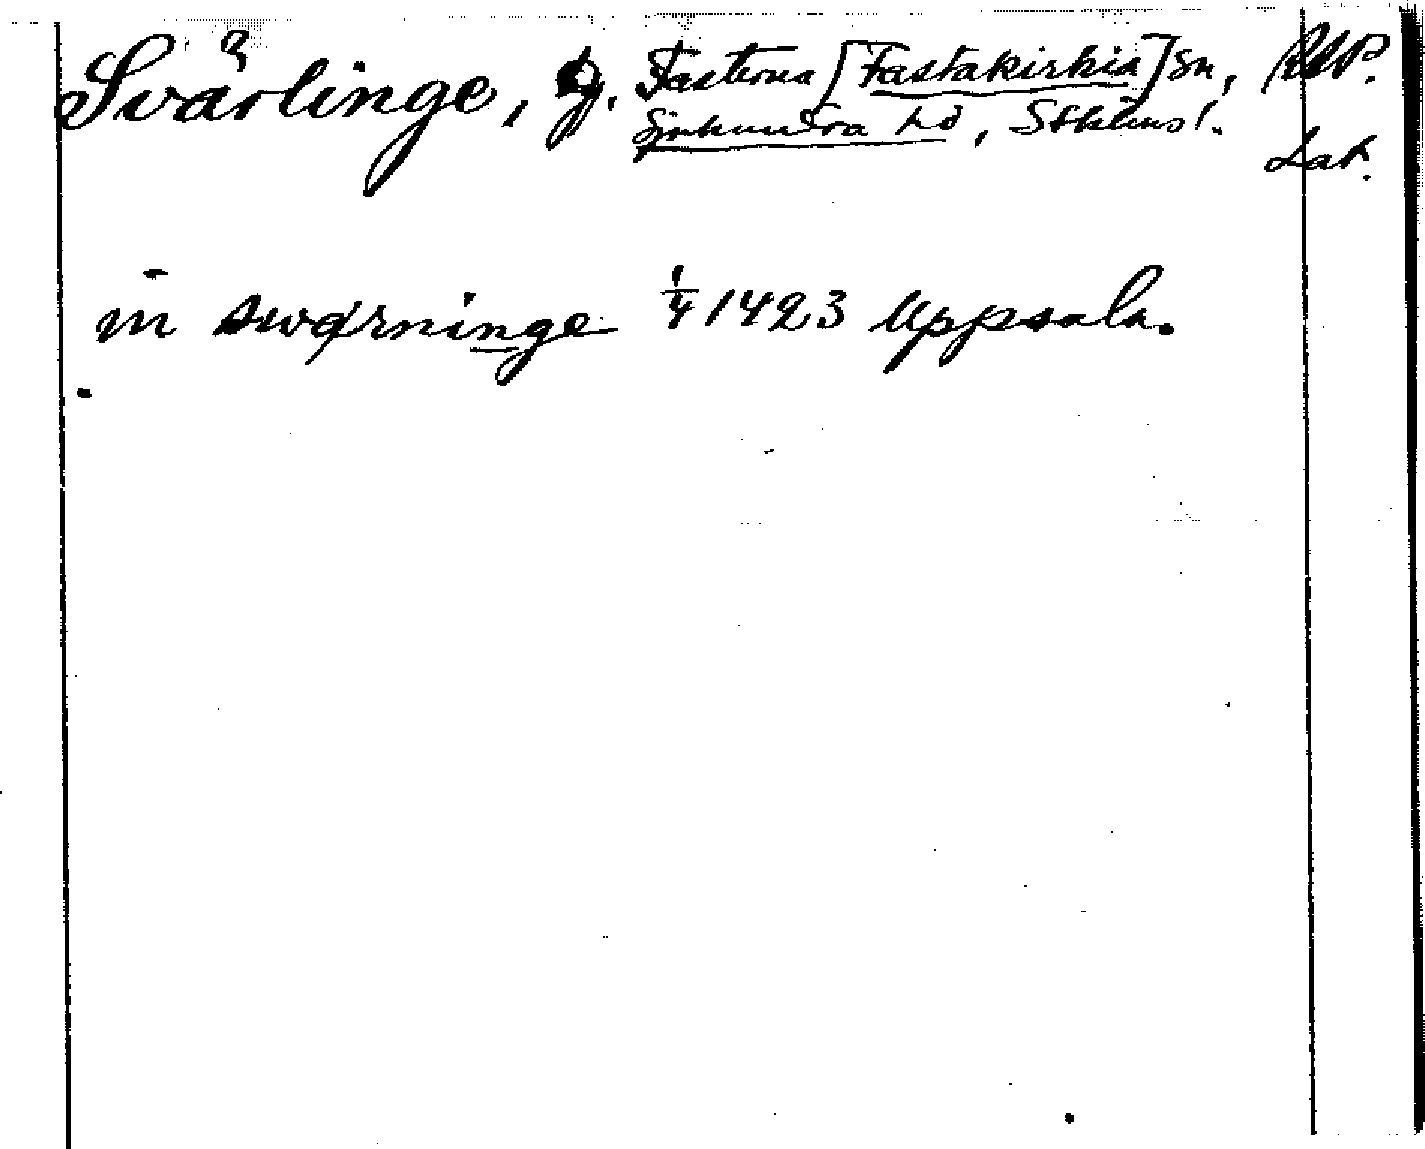 Svärlinge, g. Fasterna [Fastakirkia] sn, RAP.
Sjuhundra hd, Sthlms l. Lat.
in swærninge 1/4 1423 Uppsala.